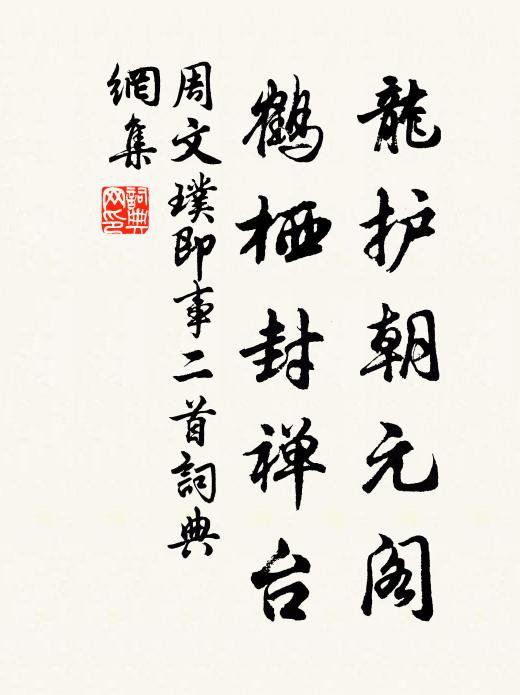 龍护朝元阁
鶴栖封禅台
周文璞即事二首詞典
網集
詞典網印